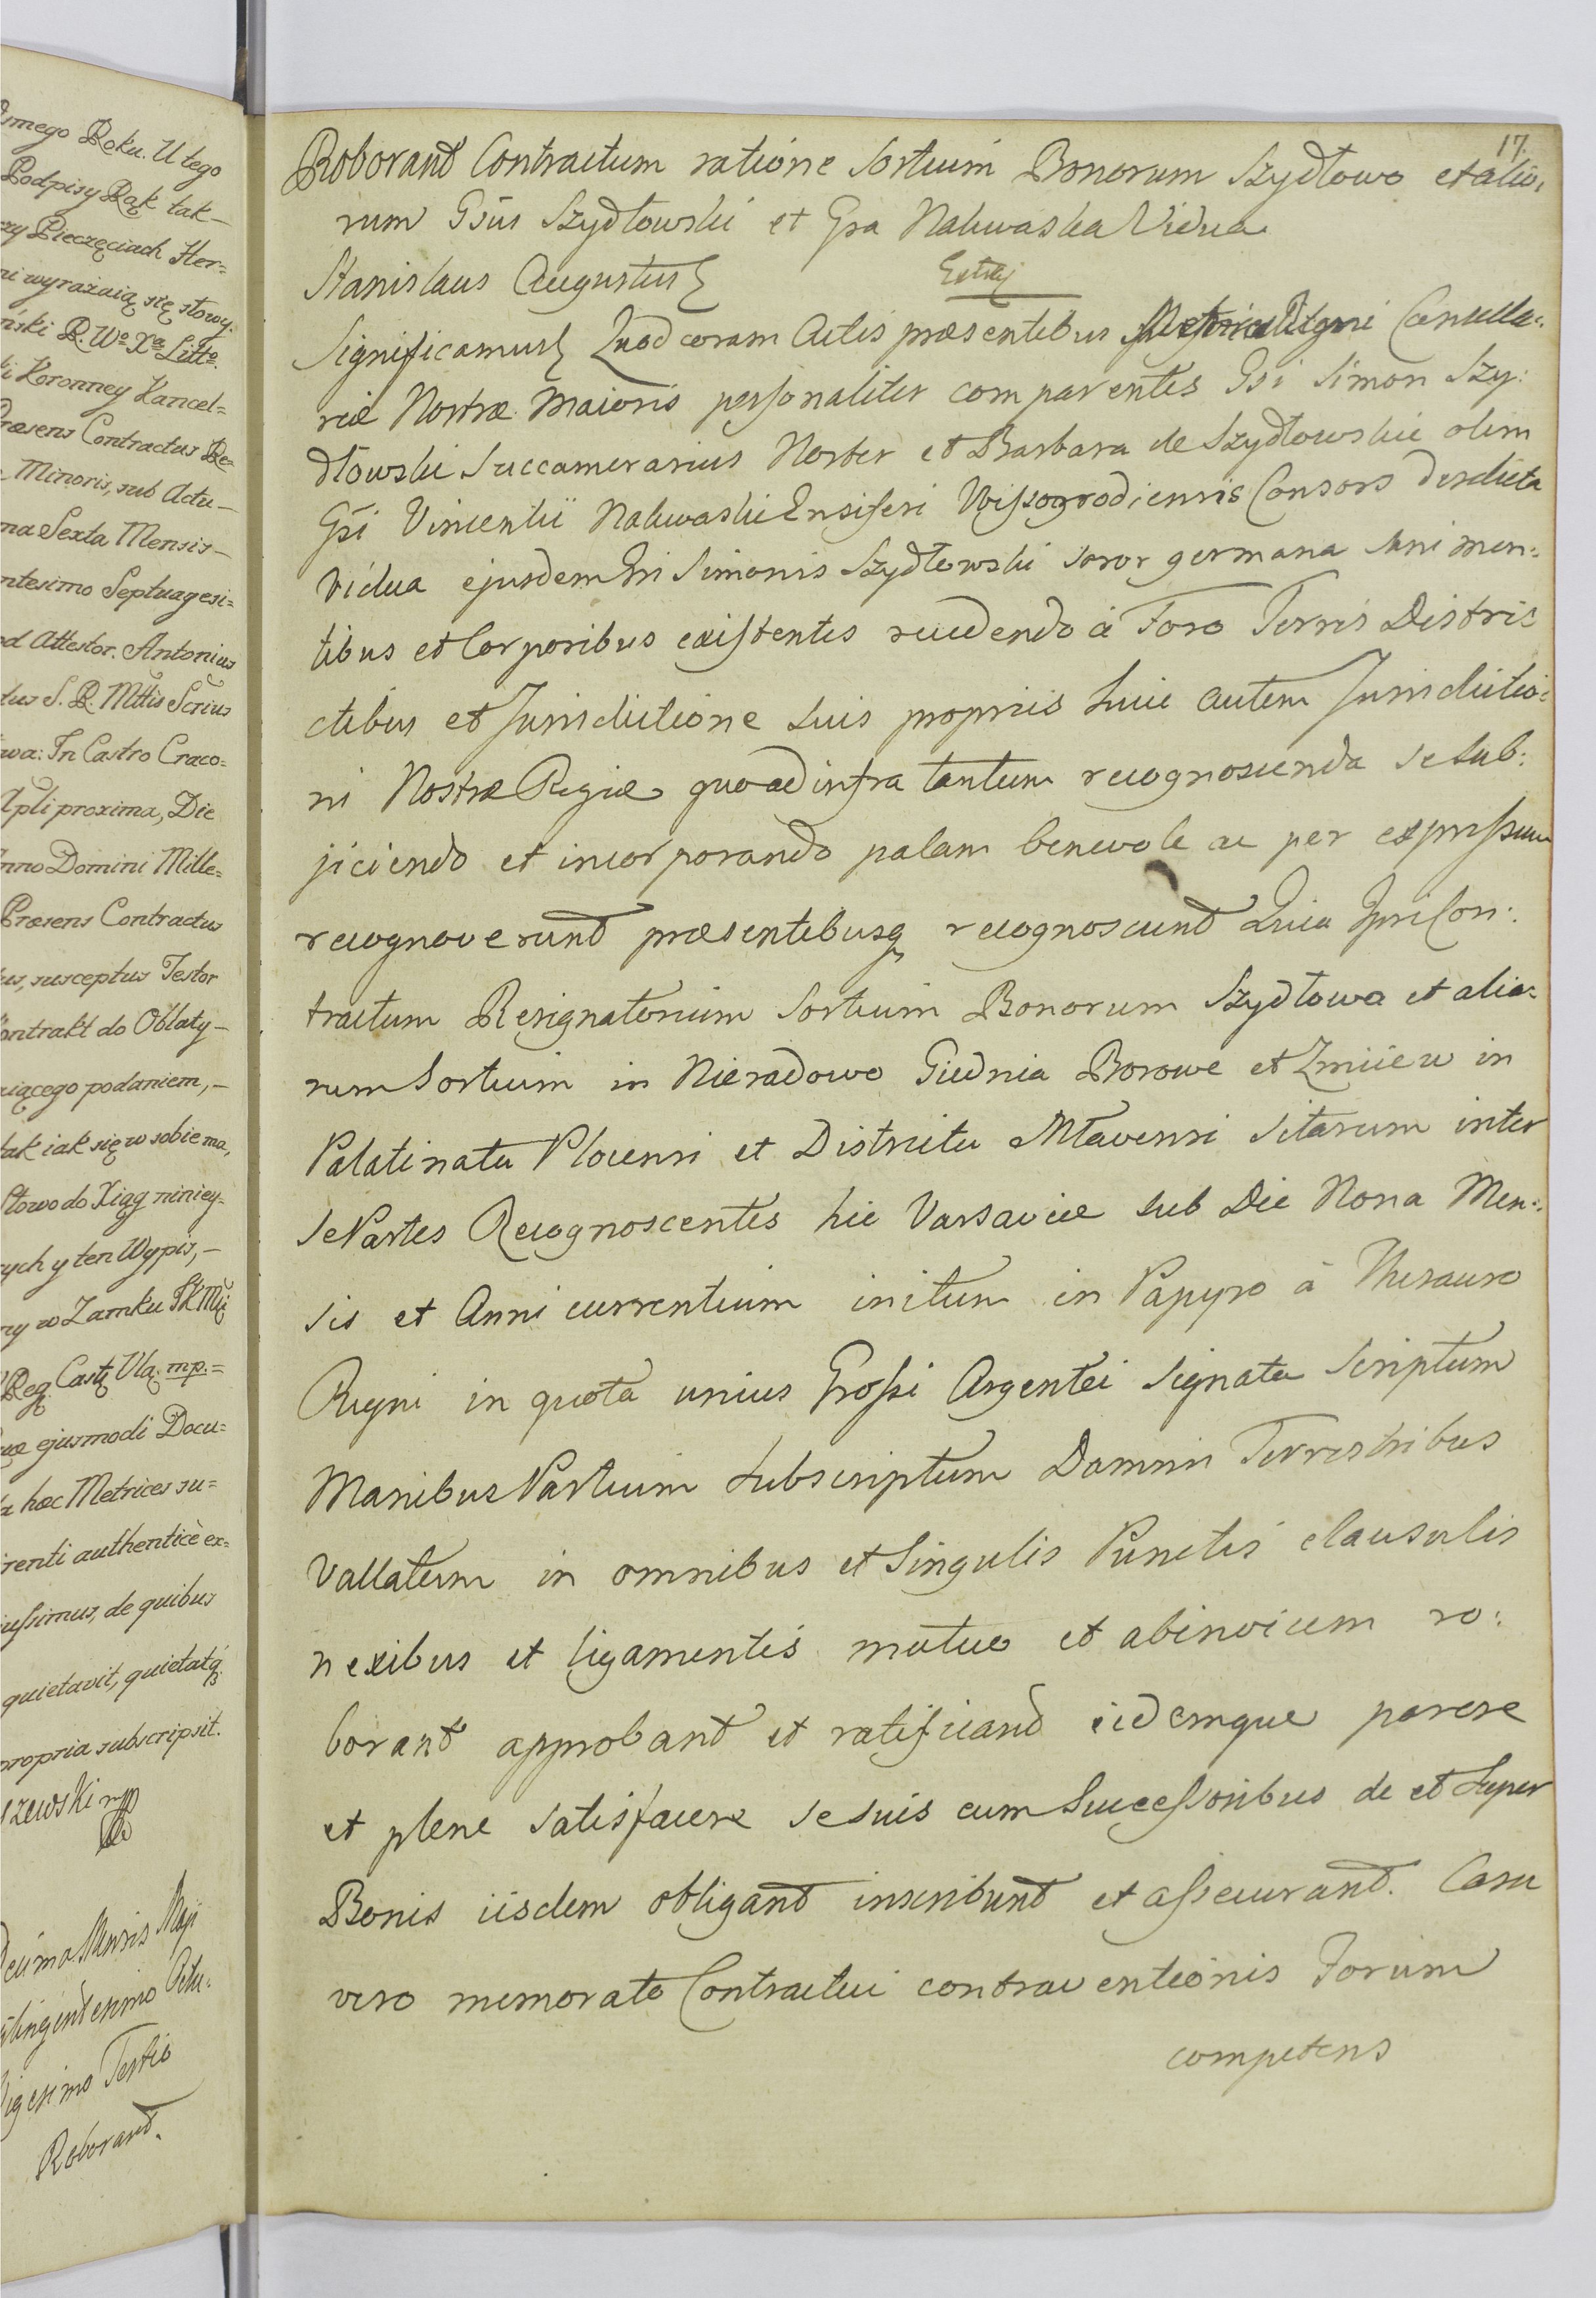 smego Roku. U tego
Podpisy Rąk tak –
zy Pieczęciach Her=
ni wyrażaią się słowy.
ński R. Wo Xa Litto.
ki Koronney Kancel=
Præsens Contractus Re=
Minoris, sub Actu –
ma Sexta Mensis –
ntesimo Septuagesi=
od Attestor. Antonius
tus S. R. Mttis Scrius
wa: In Castro Craco=
Apli proxima, Die
nno Domini Mille=
Præsens Contractus
us, susceptus Testor
ontrakt do Oblaty –
iącego podaniem, –
tak iak się w sobie ma,
Słowo do Xiąg niniey=
rych y ten Wypis, –
ny w Zamku
Reg. Cast. Vla. mp. =
ejusmodi Docu=
hæc Metrices su=
renti authenticè ex=
ussimus, de quibus
quietavit, quietatq.
propria subscripsit.
szewski mp
Decima Mensis Maji
tingentesimo Octu=
igesimo Tertio
Roborant.
17.
Roborant Contractum ratione Sortium Bonorum Szydłowo et alio=
rum Gsus Szydłowski et Gsa Nakwaska Vidua
Stanislaus Augustus
Significamus Quod coram Actis præsentibus Metrices Regni Cancella=
riæ Nostræ Maioris personaliter comparentes Gsi Simon Szy=
dłowski Succamerarius Noster et Barbara de Szydłowskie olim
Gsi Vincentii Nakwaski Ensiferi Wissogrodiensis Consors derelicta
Vidua ejusdem Gsi Simonis Szydłowski soror germana sani men=
tibus et Corporibus existentes recedendo à Foro Terris Distric
ctibus et Jurisdictione suis propriis huic autem Jurisdictio=
ni Nostræ Regiæ quo ad infra tantum recognoscenda se sub=
jiciendo et incorporando palam benevole ac per expressum
recognoverunt præsentibusq recognoscunt Quia Ipsi Con=
tractum Resignatorium Sortium Bonorum Szydłowa et alia=
rum Sortium in Nieradowo Giednia Borowe et Zmiiew in
Palatinatu Plocensi et Districtu Mlavensi sitarum inter
se Partes Recognoscentes hic Varsaviæ sub Die Nona Men=
sis et Anni currentium initum in Papyro à Thesauro
Regni in quota unius Grossi Argentei signata scriptum
Manibus Partium subscriptum Damnis Terrestribus
Vallatum in omnibus et singulis Punctis clausulis
nexibus et ligamentis mutuo et abinvicem ro=
borant approbant et ratificant eidemque parere
et plene satisfacere se suis cum Successoribus de et super
Bonis iisdem obligant inscribunt et assecurant. Casu
vero memorato Contractui contraventionis Forum
competens